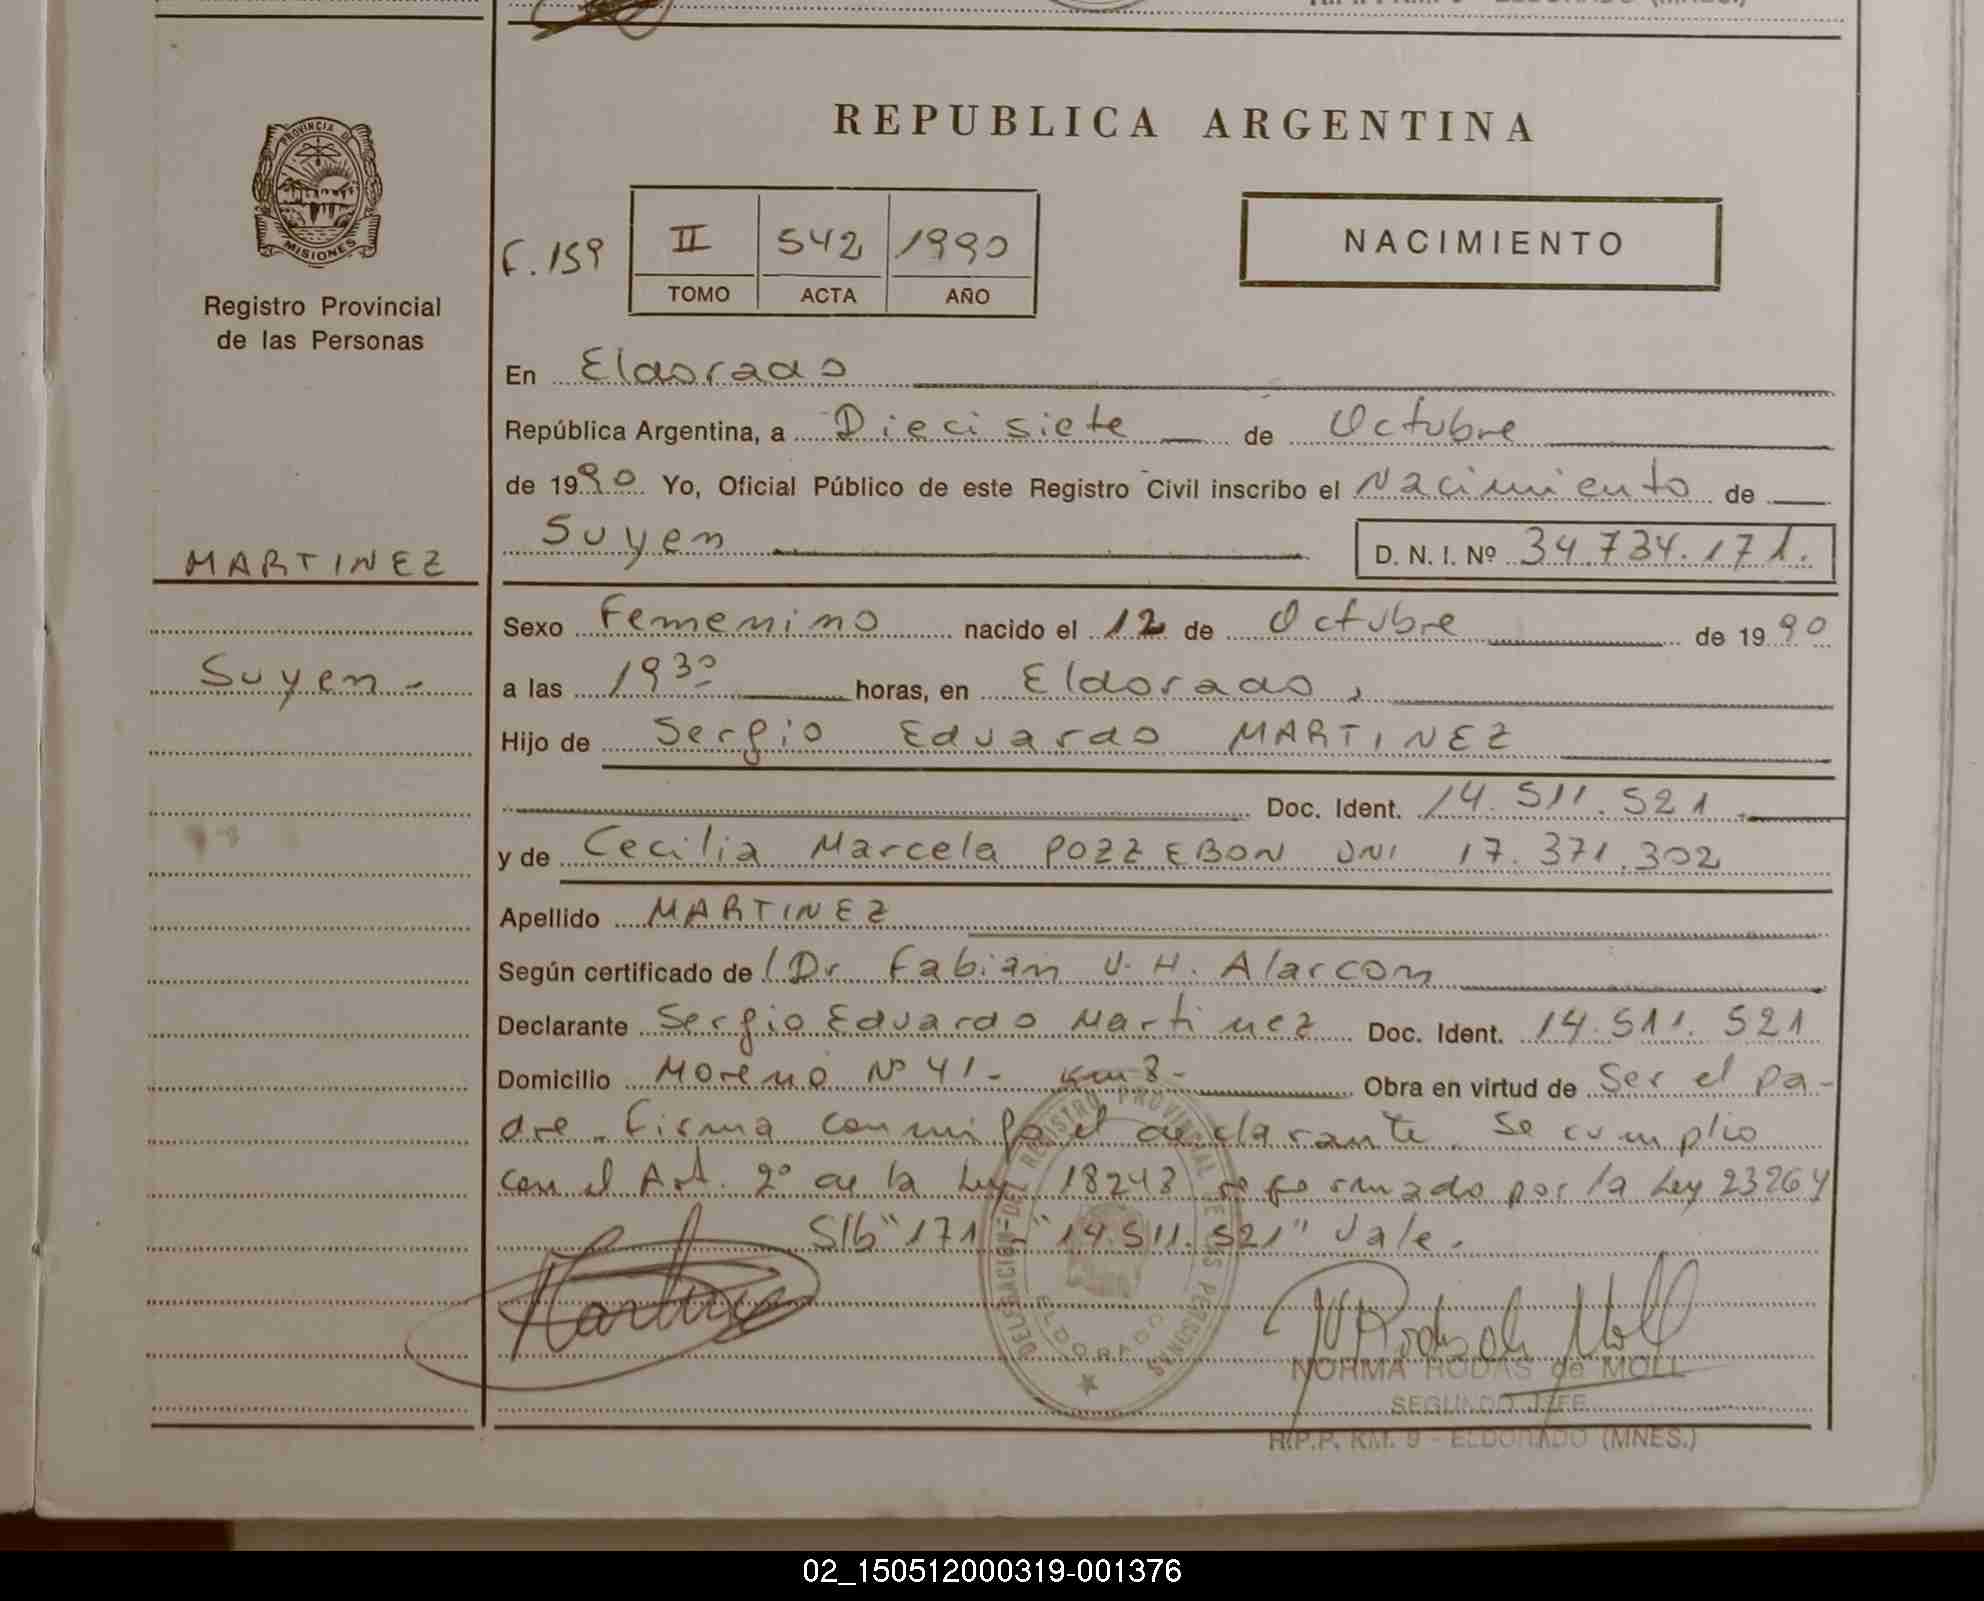 REPUBLICA ARGENTINA
PROVINCIA DE
MISIONES
Registro Provincial
de las Personas
F. 159
II 542 1990
TOMO ACTA AÑO
NACIMIENTO
En Eldorado
República Argentina, a Diecisiete de Octubre
de 1990 Yo, Oficial Público de este Registro Civil inscribo el Nacimiento de
MARTINEZ
Suyen D. N. I. Nº 34.734.171.
Sexo Femenino nacido el 12 de Octubre de 1990
Suyen -
a las 19 30 horas, en Eldorado,
Hijo de Sergio Eduardo MARTINEZ
Doc. Ident. 14.511.521
y de Cecilia Marcela POZZEBON DNI 17.371.302
Apellido MARTINEZ
Según certificado de Dr Fabian V. H. Alarcon
Declarante Sergio Eduardo Martinez Doc. Ident. 14.511.521
Domicilio Moreno Nº 41- km 8- Obra en virtud de Ser el pa-
dre. Firma conmigo el declarante. Se cumplio
con el Art. 2º de la Ley 18248 reformado por la Ley 23264
S/b "171" - "14.511.521" Vale.
DELEGACION DEL REGISTRO PROVINCIAL DE LAS PERSONAS
ELDORADO
NORMA RODAS de MOLL
SEGUNDO JEFE
R.P.P. KM. 9 - ELDORADO (MNES.)
02_150512000319-001376